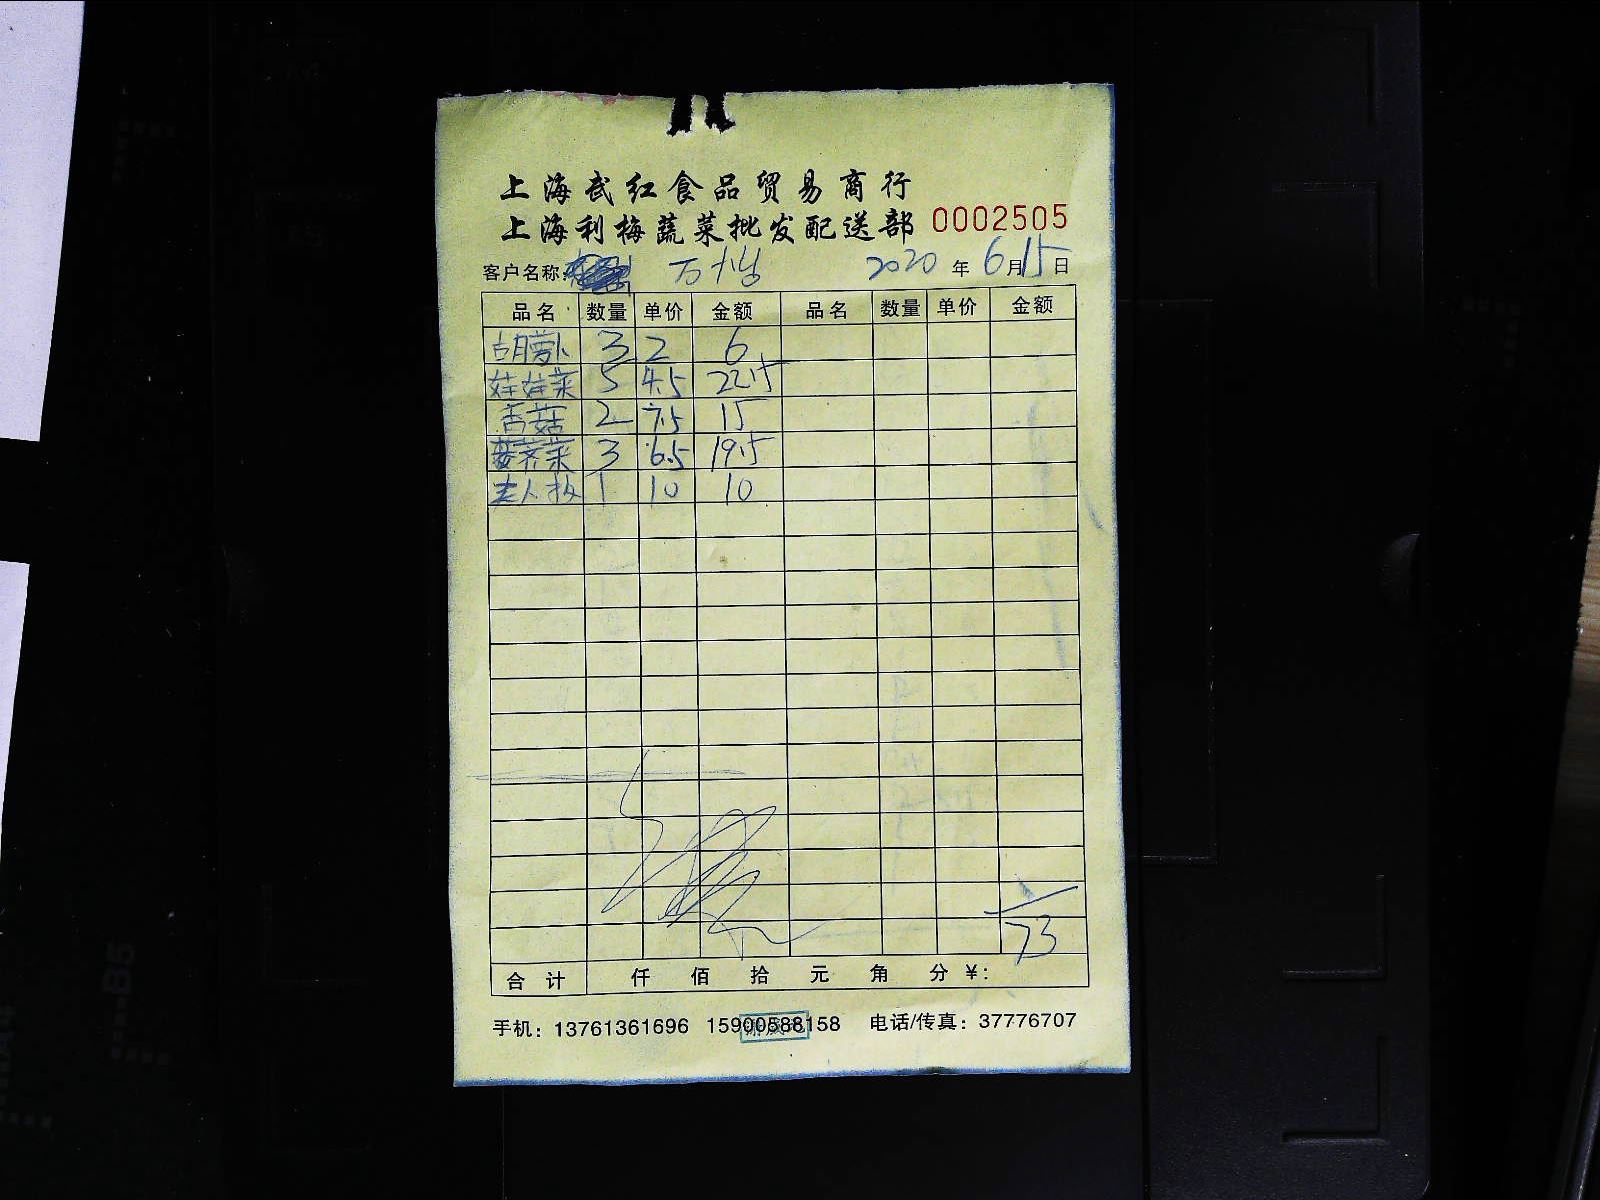 上海武红食品贸易商行
上海利梅蔬菜批发配送部 0002505
客户名称: 2020 年 6月15日
品名 数量 单价 金额 品名 数量 单价 金额
胡萝卜 3 2 6
娃娃菜 5 4.5 22.5
香菇 2 7.5 15
荠菜 3 6.5 19.5
老人 1 10 10
73
合计 仟 佰 拾 元 角 分 ¥:
手机: 13761361696 15900588158 电话/传真: 37776707